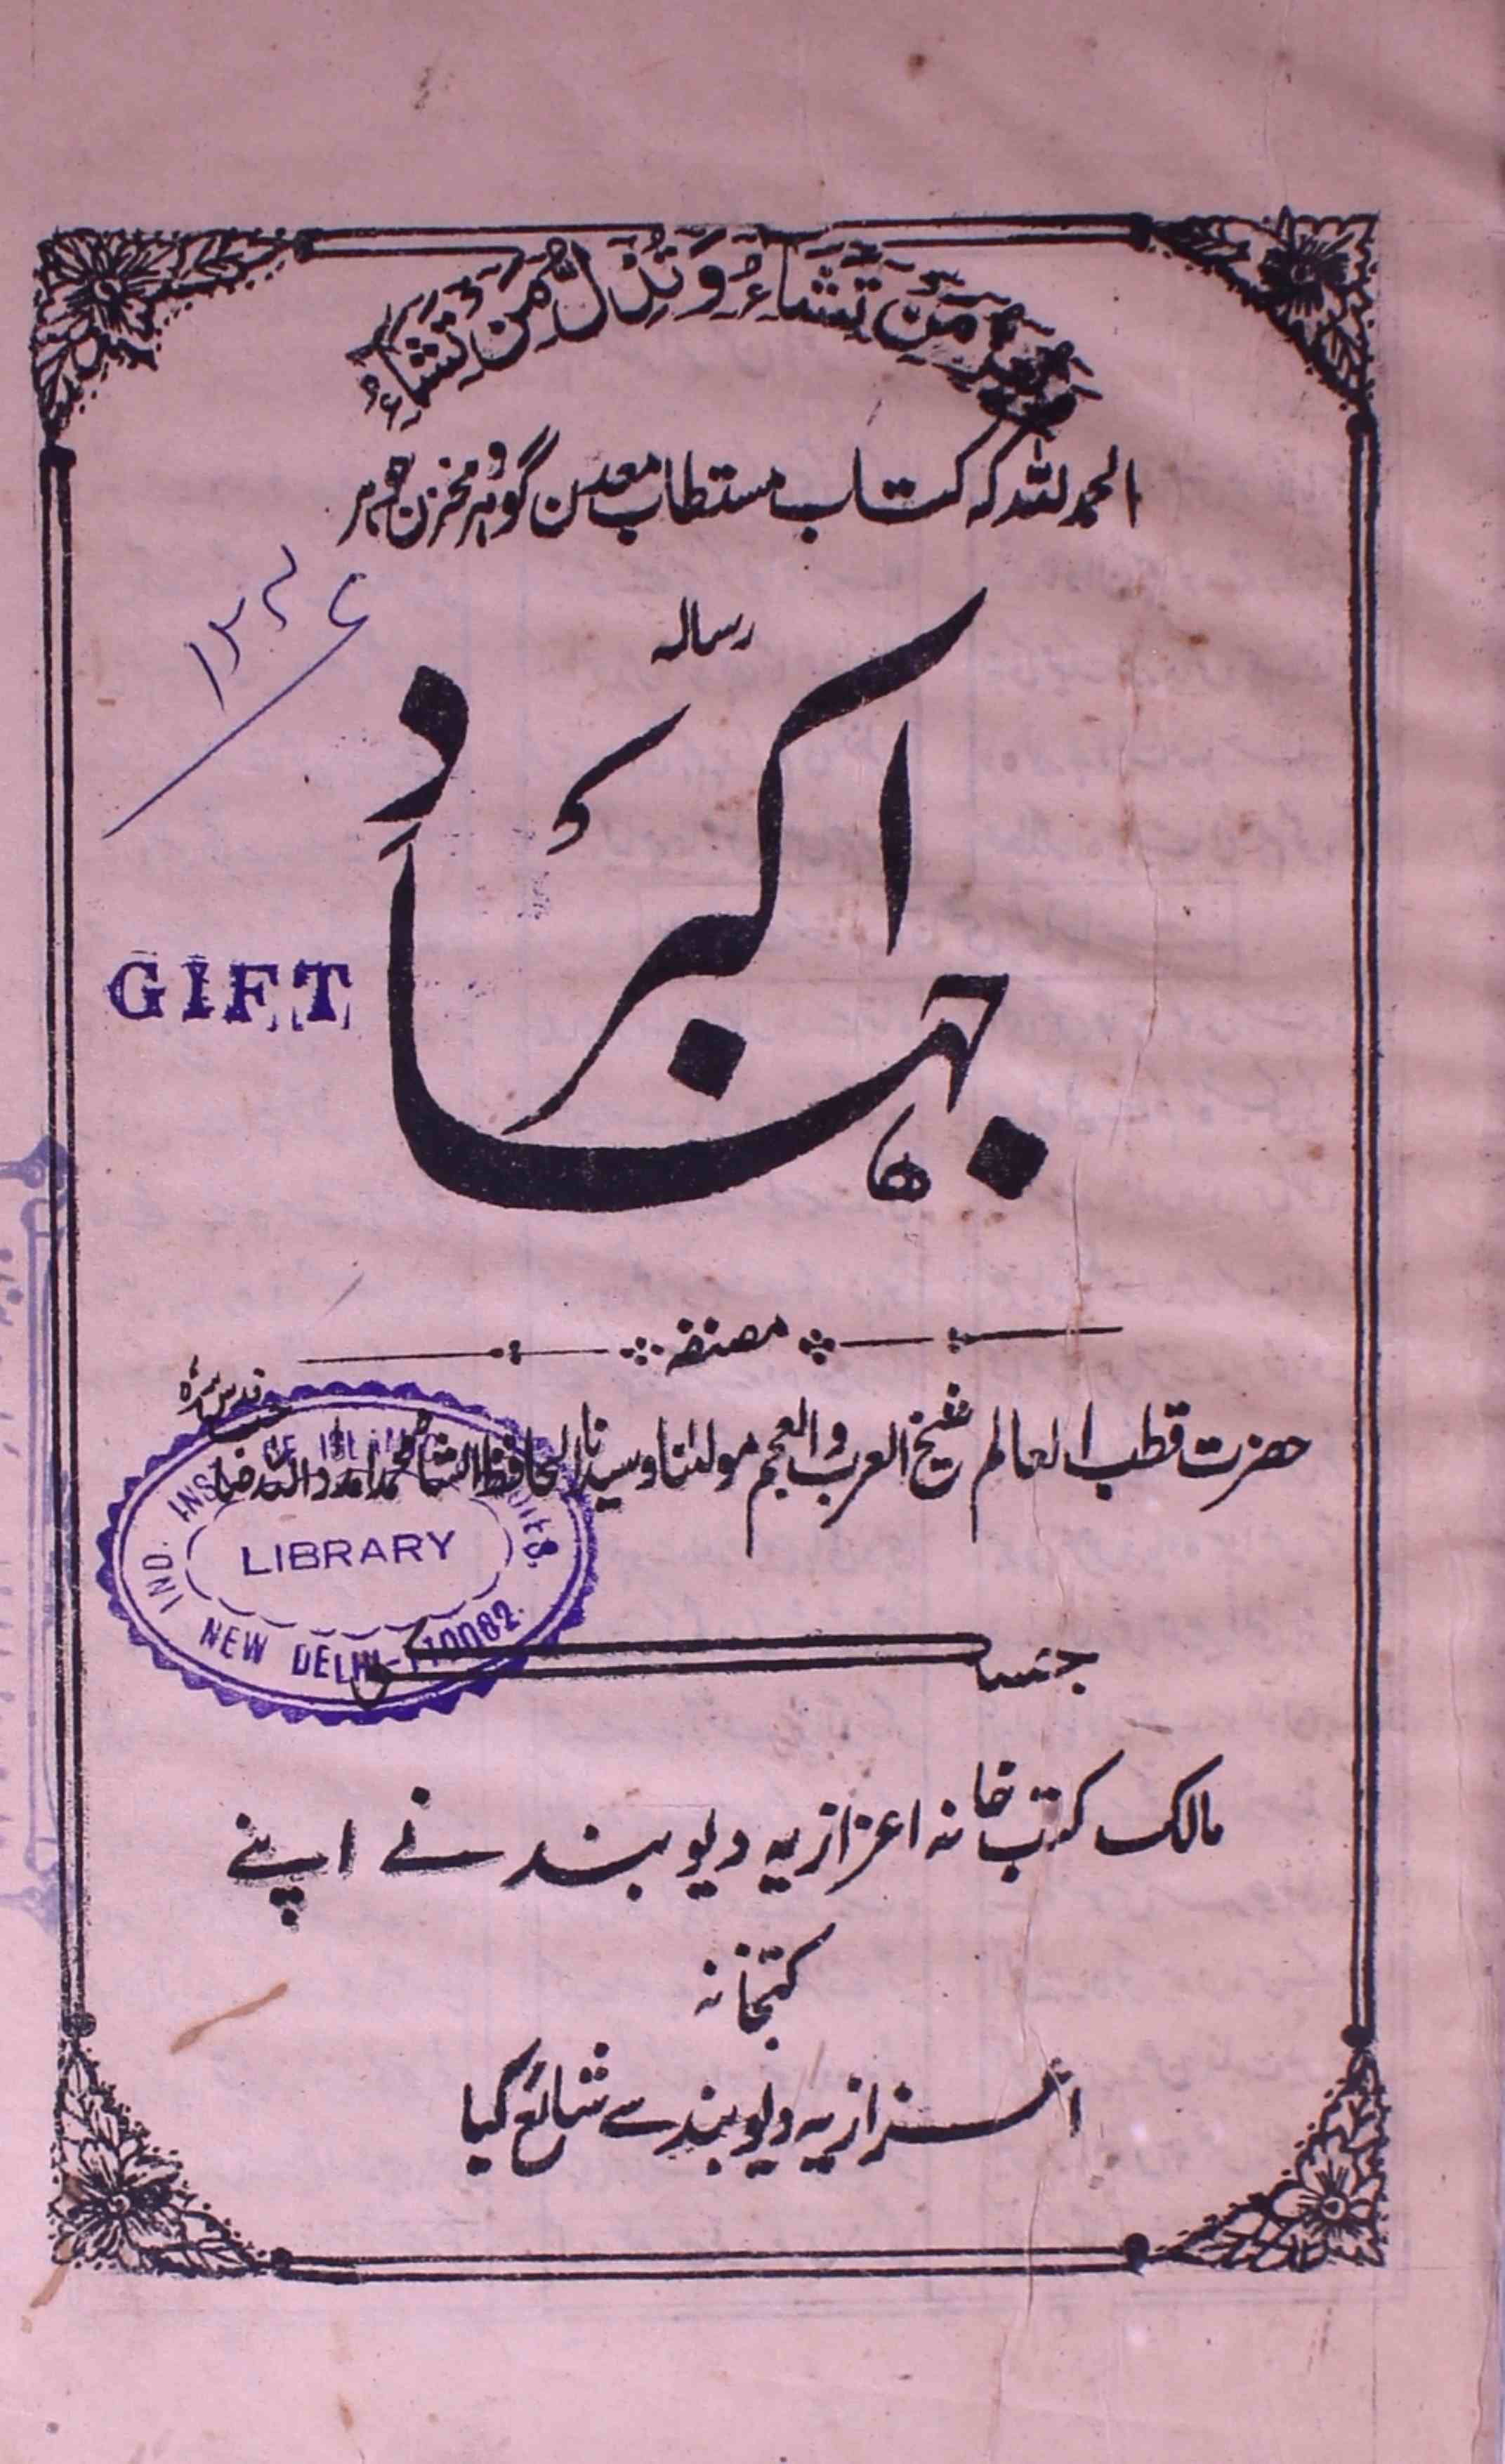 وَتُعِزُّ مَنْ تَشَاءُ وَتُذِلُّ مَنْ تَشَاءُ
الحمد للہ کہ کتاب مستطاب معدن گوہر مخزن جوہر
رسالہ
جہاد اکبر
GIFT
مصنفہ
حضرت قطب العالم شیخ العرب والعجم مولٰنا وسیدنا الحافظ الشاہ محمد امداد اللہ صاحب قدس سرہٗ
IND. INS OF ISLAMIC
LIBRARY
NEW DELHI-110062
جس کو
مالک کتب خانہ اعزازیہ دیوبند نے اپنے
کتبخانہ
اعزازیہ دیوبند سے شائع کیا